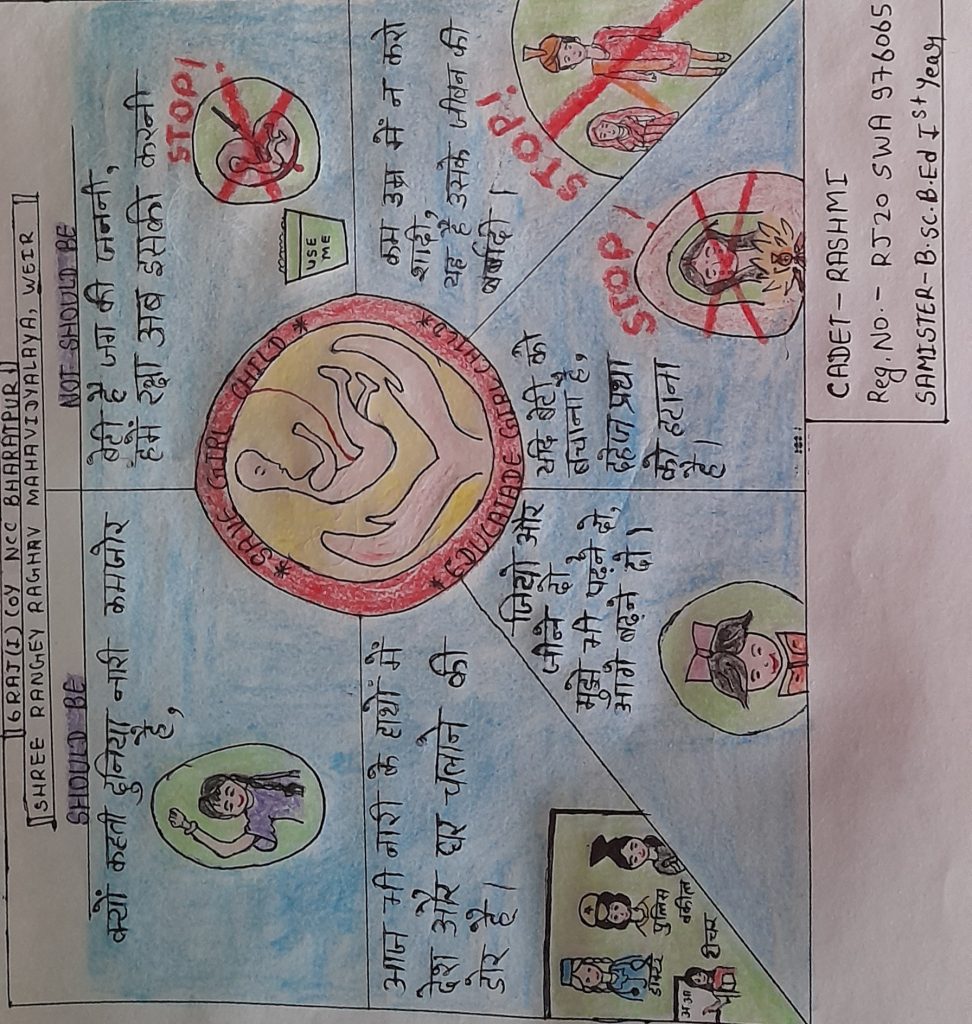 [6 RAJ(I) COY NCC BHARATPUR]
[SHREE RANGHEY RAGHAV MAHAVIDYALAYA, WEIR]
SHOULD BE
NOT SHOULD BE
क्यों कहती दुनिया नारी कमजोर
है,
आज भी नारी के हाथों में
देश और घर चलाने की
डोर है।
डॉक्टर
पुलिस
वकील
टीचर
अ आ
जियो और
जीने दो
मुझे भी पढ़ने दो,
आगे बढ़ने दो।
* SAVE GIRL CHILD *
* EDUCATADE GIRL CHILD *
बेटी है जग की जननी,
हमें रक्षा अब इसकी करनी
STOP!
USE
ME
कम उम्र में न करो
शादी,
यह है उसके जीवन की
बर्बादी।
STOP!
यदि बेटी को
बचाना है,
दहेज प्रथा
को हटाना
है।
STOP!
CADET - RASHMI
Reg. NO. - RJ20 SWA 976065
SAMISTER - B.Sc. B.Ed Ist Year